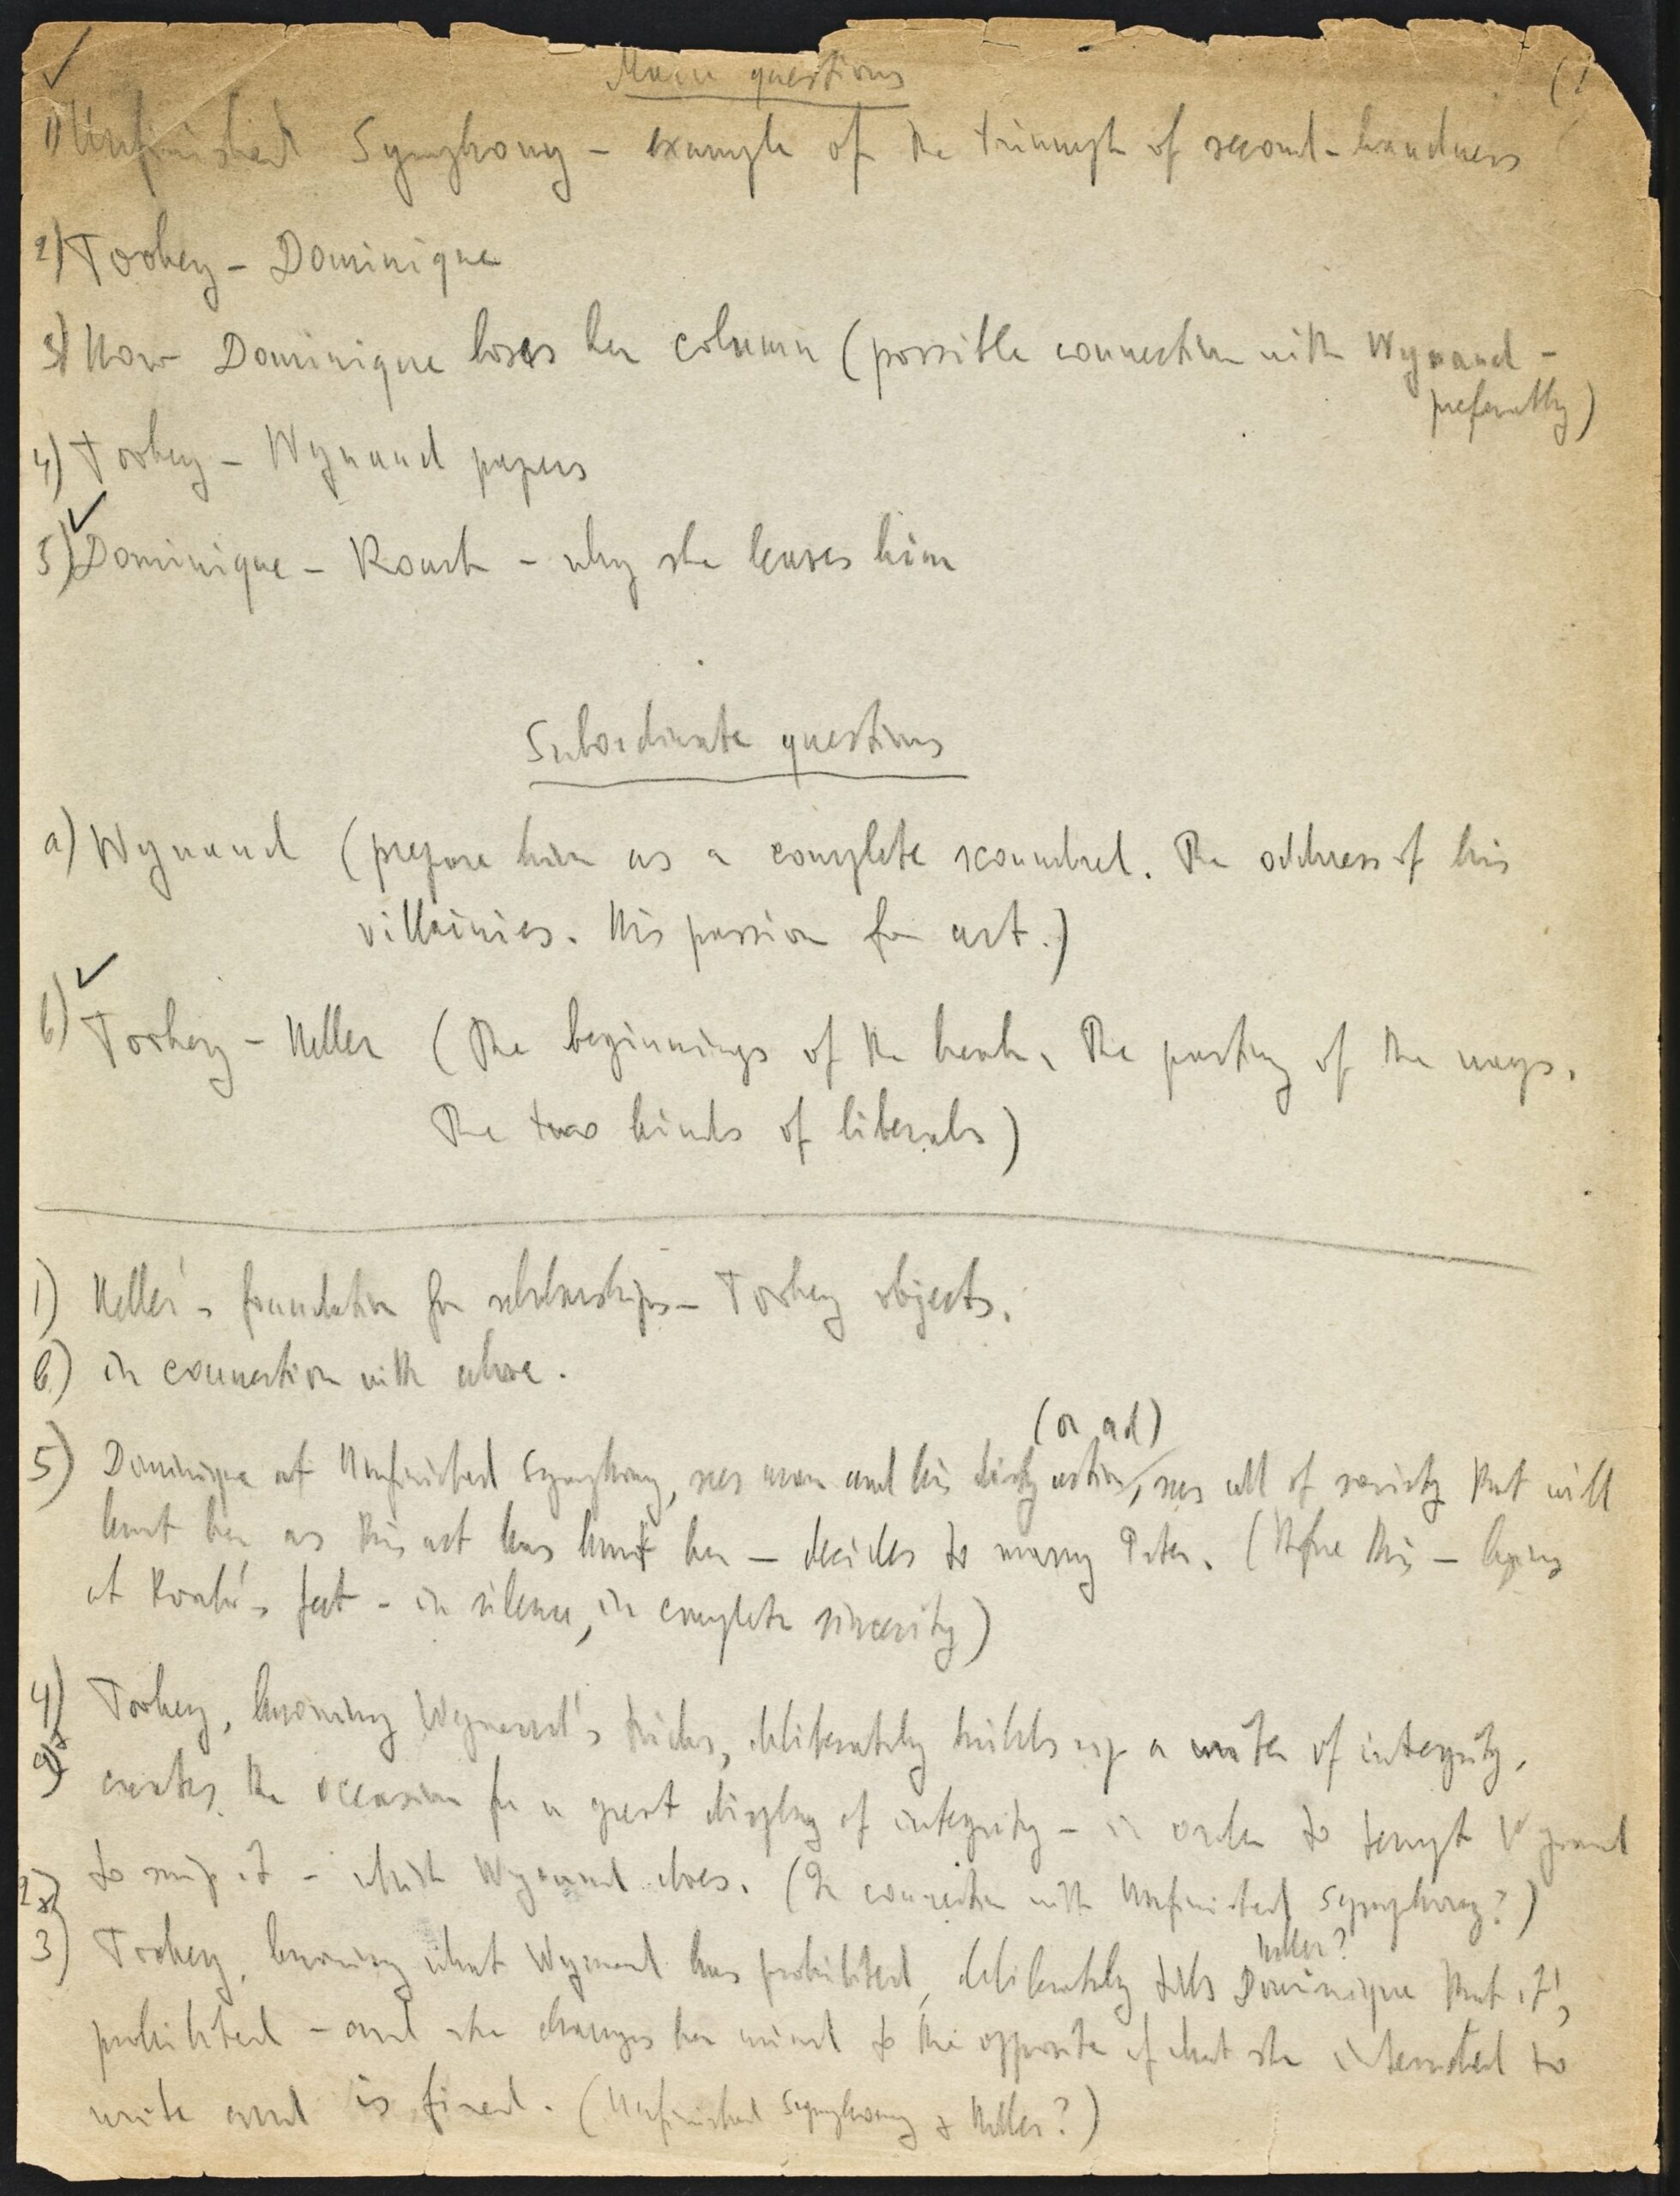 Main questions
(1
✓
1) Unfinished Symphony – example of the triumph of second-handness
2) Toohey – Dominique
3) How Dominique loses her column (possible connection with Wynand –
preferably)
4) Toohey – Wynand papers
✓
5) Dominique – Roark – why she leaves him
Subordinate questions
a) Wynand (prepare him as a complete scoundrel. The oddness of his
villainies. His passion for art.)
✓
b) Toohey – Heller (The beginnings of the break. The parting of the ways.
The two kinds of liberals)
1) Heller's foundation for scholarships – Toohey objects.
b) in connection with above.
(or ad)
5) Dominique at Unfinished Symphony, sees man and his dirty action, sees all of society that will
hurt her as this act has hurt her – decides to marry Peter. (Before this – lying
at Roark's feet – in silence, in complete sincerity)
4) Toohey, knowing Wynand's tricks, deliberately builds up a writer of integrity,
creates the occasion for a great display of integrity – in order to tempt Wynand
to it – which Wynand does. (In connection with Unfinished Symphony?)
2)
Heller?
3) Toohey, knowing what Wynand has prohibited, deliberately tells Dominique that it's
prohibited – and she changes her mind to the opposite of what she intended to
write and is fired. (Unfinished Symphony & Heller?)